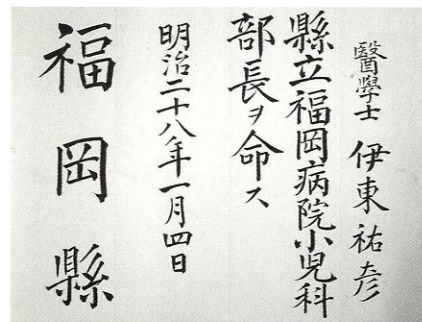 醫學士 伊東祐彦
縣立福岡病院小児科
部長ヲ命ス
明治二十八年一月四日
福岡縣